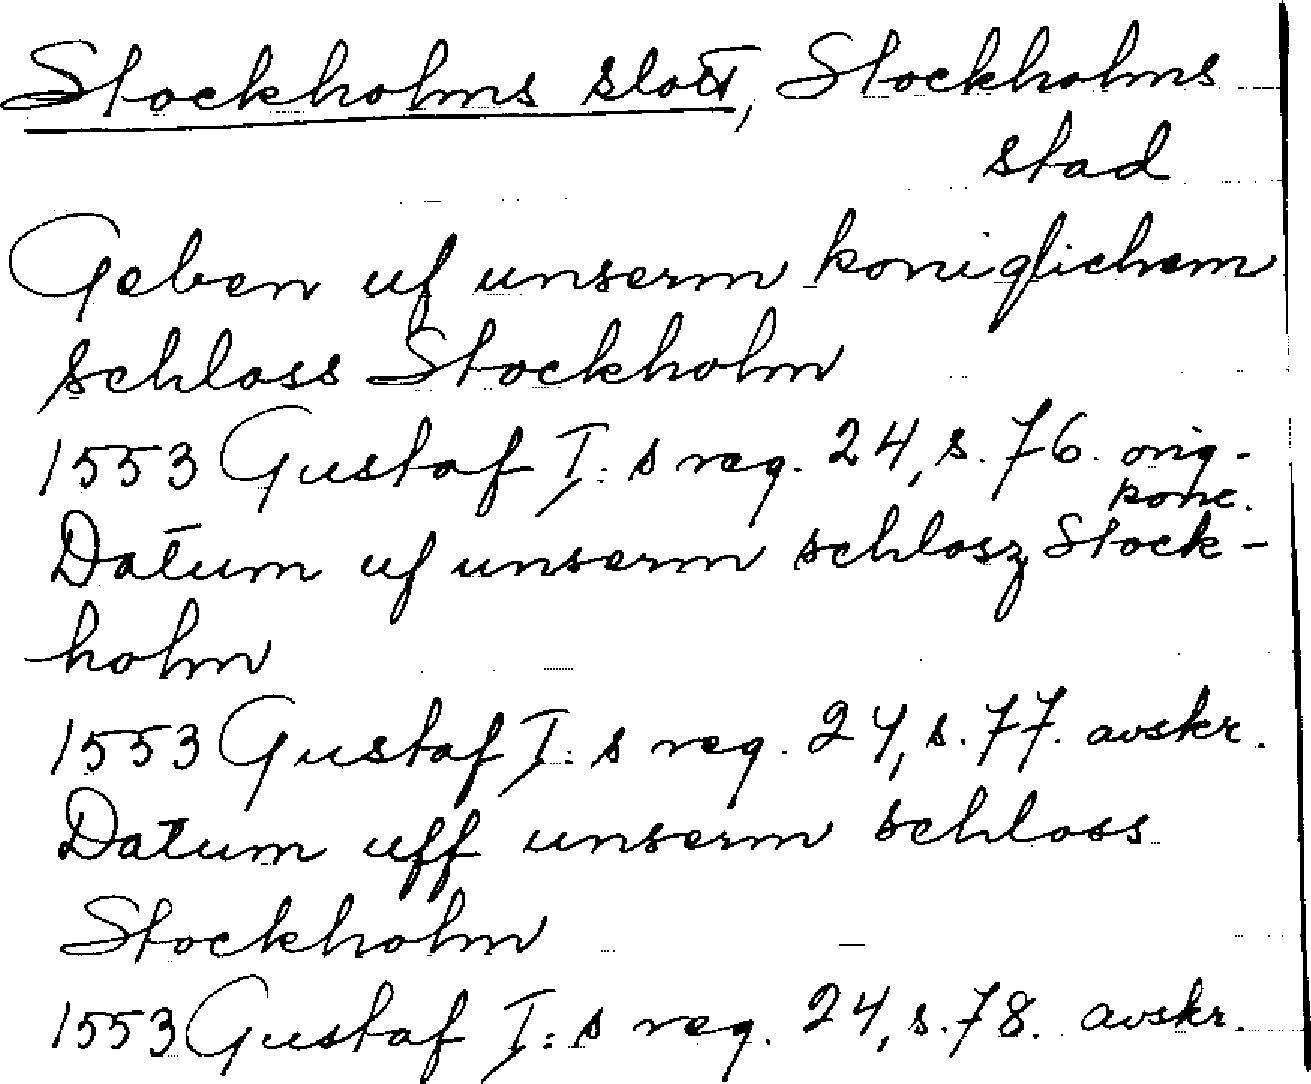 Stockholms slott, Stockholms
stad
Geben uf unserm koniglichem
schloss Stockholm
1553 Gustaf I:s reg. 24, s. 76. orig-
konc.
Datum uf unserm schlosz Stock-
holm
1553 Gustaf I:s reg. 24, s. 77. avskr.
Datum uff unserm schloss
Stockholm
1553 Gustaf I:s reg. 24, s. 78. avskr.